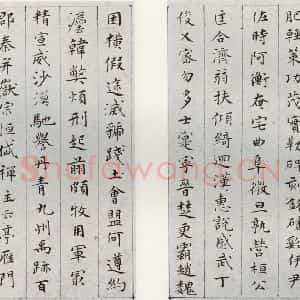 肥輕策功茂實勒碑刻銘磻溪伊尹
佐時阿衡奄宅曲阜微旦孰營桓公
匡合濟弱扶傾綺迴漢惠說感武丁
俊乂密勿多士寔寧晉楚更霸趙魏
困橫假途滅虢踐土會盟何遵約
法韓弊煩刑起翦頗牧用軍最
精宣威沙漠馳譽丹青九州禹跡百
郡秦并嶽宗恒岱禪主云亭雁門
Shufawang.CN